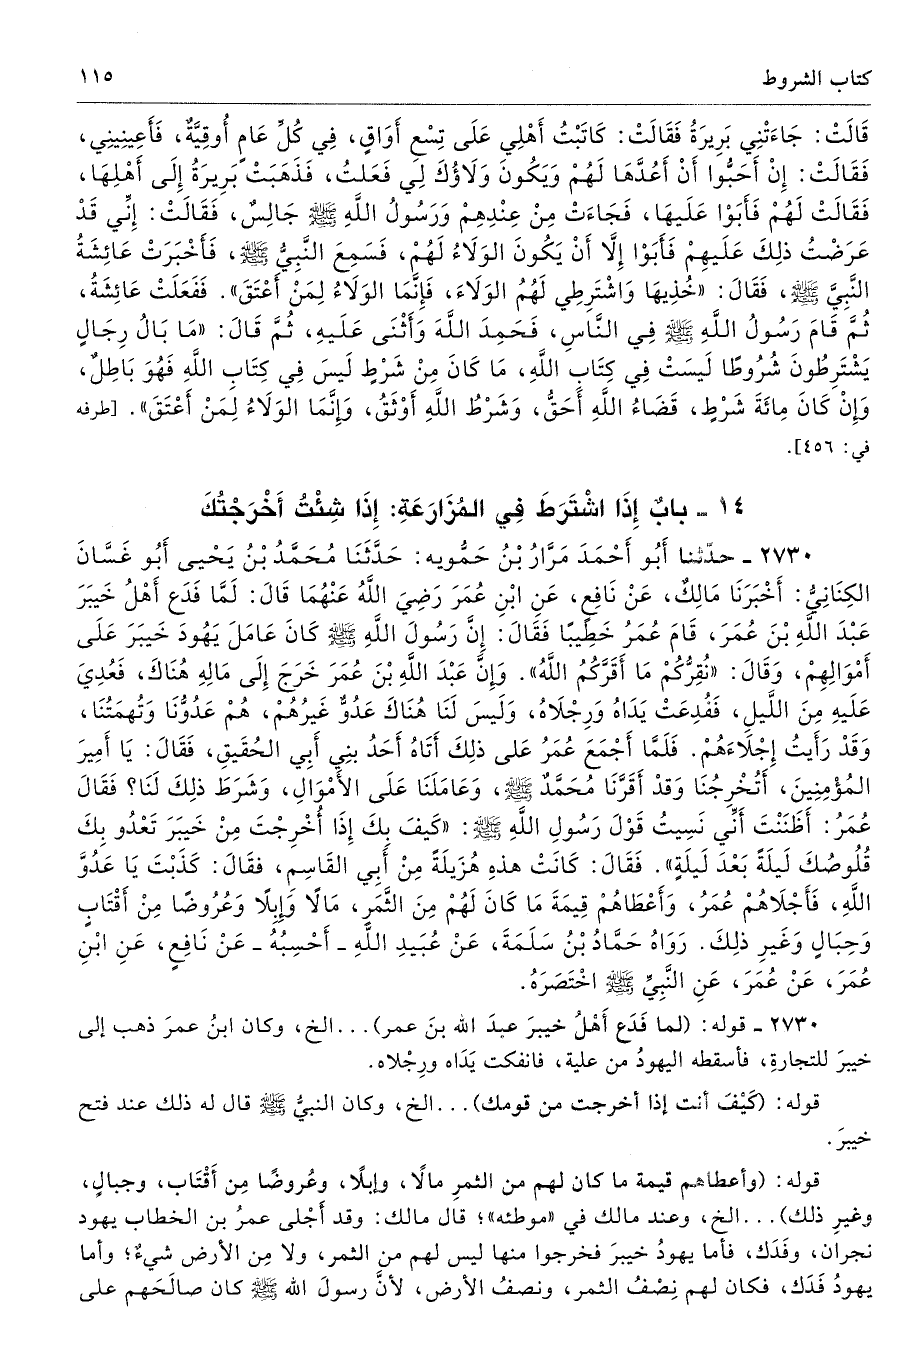 كتاب الشروط
١١٥
قَالَتْ: جَاءَتْنِي بَرِيرَةُ فَقَالَتْ: كَاتَبْتُ أَهْلِي عَلَى تِسْعِ أَوَاقٍ، فِي كُلِّ عَامٍ أُوقِيَّةٌ، فَأَعِينِينِي،
فَقَالَتْ: إِنْ أَحَبُّوا أَنْ أَعُدَّهَا لَهُمْ وَيَكُونَ وَلَاؤُكَ لِي فَعَلتُ، فَذَهَبَتْ بَرِيرَةُ إِلَى أَهْلِهَا،
فَقَالَتْ لَهُمْ فَأَبَوْا عَلَيهَا، فَجَاءَتْ مِنْ عِنْدِهِمْ وَرَسُولُ اللَّهِ ﷺ جَالِسٌ، فَقَالَتْ: إِنِّي قَدْ
عَرَضْتُ ذلِكَ عَلَيهِمْ فَأَبَوْا إِلَّا أَنْ يَكُونَ الوَلَاءُ لَهُمْ، فَسَمِعَ النَّبِيُّ ﷺ، فَأَخْبَرَتْ عَائِشَةُ
النَّبِيَّ ﷺ، فَقَالَ: «خُذِيهَا وَاشْتَرِطِي لَهُمُ الوَلَاءَ، فَإِنَّمَا الوَلَاءُ لِمَنْ أَعْتَقَ». فَفَعَلَتْ عَائِشَةُ،
ثُمَّ قَامَ رَسُولُ اللَّهِ ﷺ فِي النَّاسِ، فَحَمِدَ اللَّهَ وَأَثْنَى عَلَيهِ، ثُمَّ قَالَ: «مَا بَالُ رِجَالٍ
يَشْتَرِطُونَ شُرُوطًا لَيسَتْ فِي كِتَابِ اللَّهِ، مَا كَانَ مِنْ شَرْطٍ لَيسَ فِي كِتَابِ اللَّهِ فَهُوَ بَاطِلٌ،
وَإِنْ كَانَ مِائَةَ شَرْطٍ، قَضَاءُ اللَّهِ أَحَقُّ، وَشَرْطُ اللَّهِ أَوْثَقُ، وَإِنَّمَا الوَلَاءُ لِمَنْ أَعْتَقَ». [طرفه
في: ٤٥٦].
١٤ ـ بابٌ إِذَا اشْتَرَطَ فِي المُزَارَعَةِ: إِذَا شِئْتُ أَخْرَجْتُكَ
٢٧٣٠ ـ حدّثنا أَبُو أَحْمَدَ مَرَّارُ بْنُ حَمُّويه: حَدَّثَنَا مُحَمَّدُ بْنُ يَحْيى أَبُو غَسَّانَ
الكِنَانِيُّ: أَخْبَرَنَا مَالِكٌ، عَنْ نَافِعٍ، عَنِ ابْنِ عُمَرَ رَضِيَ اللَّهُ عَنْهُمَا قَالَ: لَمَّا فَدَعَ أَهْلُ خَيبَرَ
عَبْدَ اللَّهِ بْنَ عُمَرَ، قَامَ عُمَرُ خَطِيبًا فَقَالَ: إِنَّ رَسُولَ اللَّهِ ﷺ كَانَ عَامَلَ يَهُودَ خَيبَرَ عَلَى
أَمْوَالِهِمْ، وَقَالَ: «نُقِرُّكُمْ مَا أَقَرَّكُمُ اللَّهُ». وَإِنَّ عَبْدَ اللَّهِ بْنَ عُمَرَ خَرَجَ إِلَى مَالِهِ هُنَاكَ، فَعُدِيَ
عَلَيهِ مِنَ اللَّيلِ، فَفُدِعَتْ يَدَاهُ وَرِجْلَاهُ، وَلَيسَ لَنَا هُنَاكَ عَدُوٌّ غَيرُهُمْ، هُمْ عَدُوُّنَا وَتُهَمَتُنَا،
وَقَدْ رَأَيتُ إِجْلَاءَهُمْ. فَلَمَّا أَجْمَعَ عُمَرُ عَلَى ذلِكَ أَتَاهُ أَحَدُ بنِي أَبِي الحُقَيقِ، فَقَالَ: يَا أَمِيرَ
المُؤْمِنِينَ، أَتُخْرِجُنَا وَقَدْ أَقَرَّنَا مُحَمَّدٌ ﷺ، وَعَامَلَنَا عَلَى الأَمْوَالِ، وَشَرَطَ ذلِكَ لَنَا؟ فَقَالَ
عُمَرُ: أَظَنَنْتَ أَنِّي نَسِيتُ قَوْلَ رَسُولِ اللَّهِ ﷺ: «كَيفَ بِكَ إِذَا أُخْرِجْتَ مِنْ خَيبَرَ تَعْدُو بِكَ
قُلُوصُكَ لَيلَةً بَعْدَ لَيلَةٍ». فَقَالَ: كَانَتْ هذهِ هُزَيلَةً مِنْ أَبِي القَاسِمِ، فقَالَ: كَذَبْتَ يَا عَدُوَّ
اللَّهِ، فَأَجْلَاهُمْ عُمَرُ، وَأَعْطَاهُمْ قِيمَةَ مَا كَانَ لَهُمْ مِنَ الثَّمَرِ، مَالًا وَإِبِلًا وَعُرُوضًا مِنْ أَقْتَابٍ
وَحِبَالٍ وَغَيرِ ذلِكَ. رَوَاهُ حَمَّادُ بْنُ سَلَمَةَ، عَنْ عُبَيدِ اللَّهِ ـ أَحْسِبُهُ ـ عَنْ نَافِعٍ، عَنِ ابْنِ
عُمَرَ، عَنْ عُمَرَ، عَنِ النَّبِيِّ ﷺ اخْتَصَرَهُ.
٢٧٣٠ ـ قوله: (لما فَدَع أَهْلُ خيبرَ عبدَ الله بنَ عمر)...الخ، وكان ابنُ عمرَ ذهب إلى
خيبرَ للتجارةِ، فأسقطه اليهودُ من علية، فانفكت يَدَاه ورِجْلاه.
قوله: (كَيْفَ أنت إذا أخرجت من قومك)...الخ، وكان النبيُّ ﷺ قال له ذلك عند فتح
خيبرَ.
قوله: (وأعطاهم قيمة ما كان لهم من الثمرِ مالًا، وإبلًا، وعُروضًا مِن أَقْتاب، وجبالٍ،
وغيرِ ذلك)...الخ، وعند مالك في «موطئه»؛ قال مالك: وقد أَجْلى عمرُ بن الخطاب يهود
نجران، وفَدَك، فأما يهودُ خيبرَ فخرجوا منها ليس لهم من الثمر، ولا مِن الأرض شيءٌ؛ وأما
يهودُ فَدَك، فكان لهم نِصْفُ الثمر، ونصفُ الأرض، لأنَّ رسولَ الله ﷺ كان صالَحَهم على